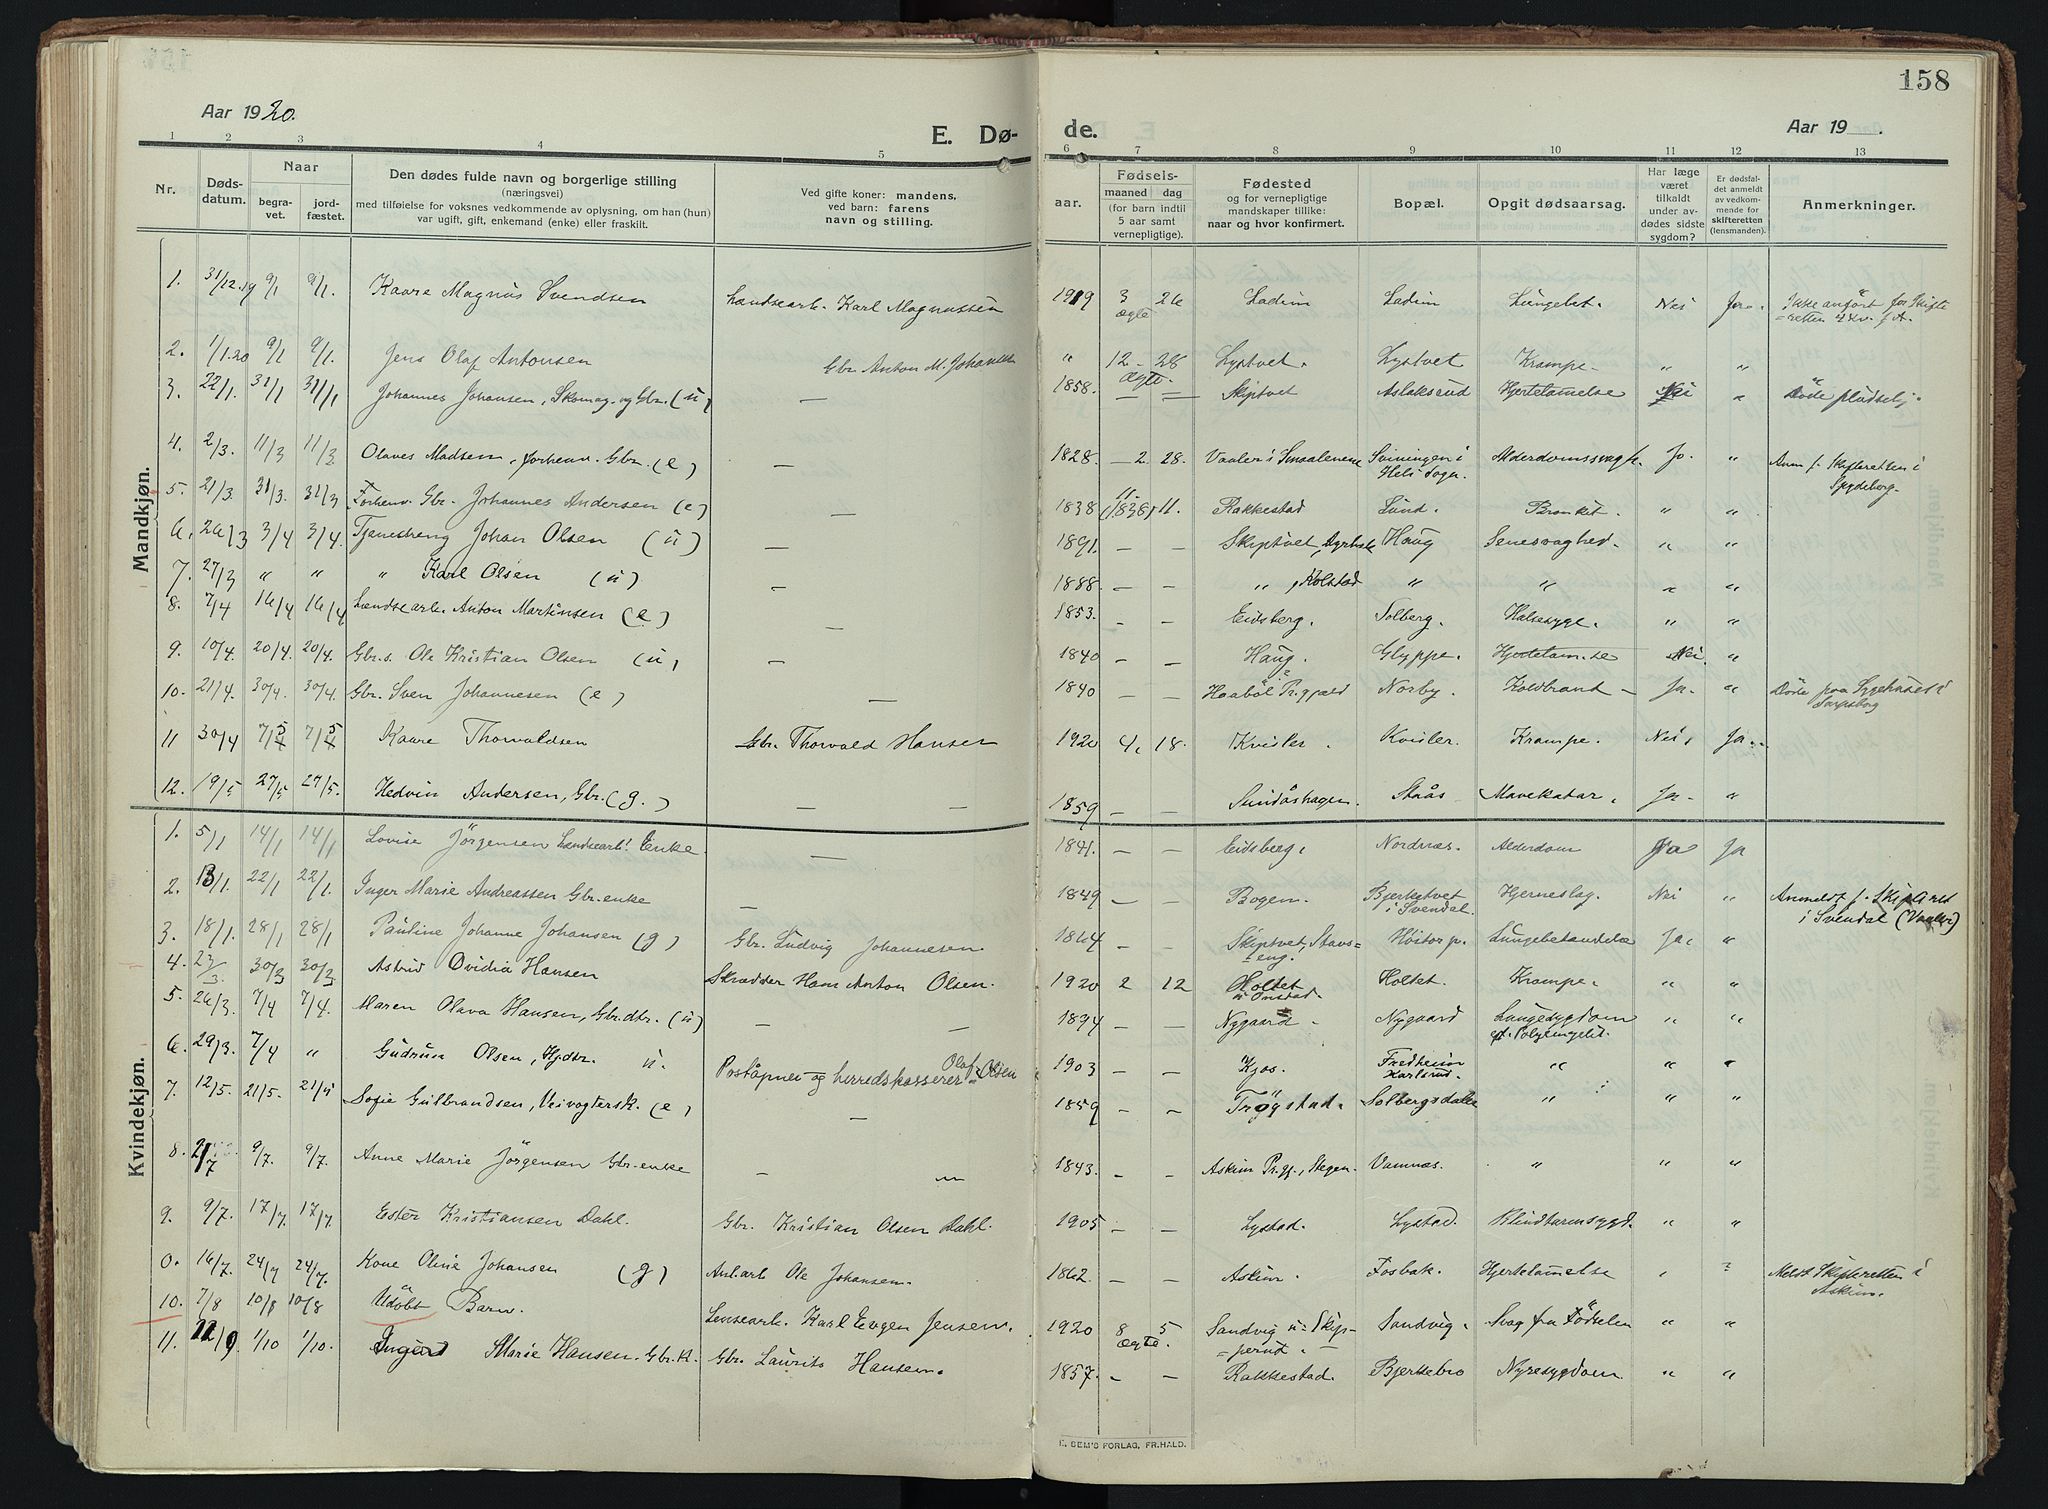 158
Aar 1920.
E. Dø-
de.
Aar 19 .
1 2 3 4 5 6 7 8 9 10 11 12 13
Nr.
Døds-
datum.
Naar
begra-
vet.
jord-
fæstet.
Den dødes fulde navn og borgerlige stilling
(næringsvei)
med tilføielse for voksnes vedkommende av oplysning, om han (hun)
var ugift, gift, enkemand (enke) eller fraskilt.
Ved gifte koner: mandens,
ved barn: farens
navn og stilling.
Fødsels-
aar.
maaned dag
(for barn indtil
5 aar samt
vernepligtige).
Fødested
og for vernepligtige
mandskaper tillike:
naar og hvor konfirmert.
Bopæl.
Opgit dødsaarsag.
Har læge
været
tilkaldt
under av-
dødes sidste
sygdom?
Er dødsfal-
det anmeldt
av vedkom-
mende for
skifteretten
(lensmanden).
Anmerkninger.
Mandkjøn.
1. 31/12.19 9/1 9/1. Kaare Magnus Svendsen Landsearb. Karl Magnussen 1919 3 26 Ladim Ladim Lungebet. Nei Ja. Ikke anført for Skifte
ægte =retten
2. 1/1.20 9/1 9/1. Jens Olaf Antonsen Gbr. Anton M. Johansen " 12 - 28 Lystvet. Lystvet Krampe - " "
Ægte.
3. 22/1. 31/1 31/1 Johannes Johansen, Skomag. og Gbr. (u) — 1858. — — Skiptvet Aslaksrud Hjertelamelse Nei " Døde pludselig.
4. 2/3. 11/3 11/3. Olaves Madsen, forhenv. Gbr. (e) — 1828. - 2. 28. Vaaler i Smaalenene Svinningen i Alderdomssvagh. Ja. " Anm f. Skifteretten i
Heli Sogn. Spydeberg.
5. 21/3. 31/3. 31/3 Forhenv. Gbr. Johannes Andersen (e) — 1838 11. 11. Rakkestad Lund. Bronkit. " "
(1838)
6. 26/3 3/4 3/4. Tjenestheng Johan Olsen (u) — 1891. — — Skiptvet, Haug Senesvaghed. " "
7. 27/3 " " " Karl Olsen (u) - 1888. — — ", Kolstad " " " "
8. 7/4 16/4 16/4 Landsearb. Anton Martinsen (e) — 1853. - - Eidsberg. Solberg. Halsesyge. " "
9. 10/4. 20/4. 20/4. Gbr.s. Ole Kristian Olsen (u) — 1840 — — Haug. Glyppe. Hjertelam.se Nei. "
10. 21/4. 30/4. 30/4. Gbr. Sven Johannesen (e) — 1840 — — Haabøl Pr.gjæld Norby. Koldbrand - Ja. " Døde paa Sygehuset i
Sarpsborg
11 30/4 7/5 7/5 Kaare Thorvaldsen Gbr. Thorvald Hansen 1920 4. 18. Kvisler. Kvisler. Krampe. Nei. Ja..
12. 19/5 27/5 27/5. Hedvin Andersen, Gbr. (g.) — — 1859 — — Sundåshagen. Staås Mavekatar. Ja. "
Kvindekjøn.
1. 5/1 14/1 14/1 Lovise Jörgensen Landsearb. Enke. — 1841. — — Eidsberg. Nordnæs. Alderdom Ja Ja
2. 13/1. 22/1 22/1. Inger Marie Andreassen Gbr. enke — 1849 — — Bogen. Bjerketvet Hjerneslag. Nei " Anmeldt f. Skiftret
i Svendal. i Svendal (Vaaler)
3. 18/1. 28/1 28/1 Pauline Johanne Johansen (g) Gbr. Ludvig Johannesen. 1864 — — Skiptvet, Stavs- Hoistorp. Lungebetændelse Ja. "
eng.
4. 23/3. 30/3 30/3 Astrid Ovidia Hansen Skrædder Hans Anton Olsen. 1920 2 12 Holtet Holtet. Krampe. " "
u Onstad.
5. 26/3. 7/4 7/4. Maren Olava Hansen, Gbr.dtr. (u) — — 1894 — — Nygaard. Nygaard Lungesygdom " "
6. 29/3. 7/4 " Gudrun Olsen, Hjdtr. u. Poståpner og herredskasserer Olaf Olsen 1903 — — Kjos. Fredheim " " "
Karlsrud.
7. 12/5. 21/5. 21/5 Sofie Gulbrandsen, Veivogtersk. (e) — 1859 - - Trøgstad. Solbergsdalen " " "
8. 2/7 9/7. 9/7. Anne Marie Jörgensen Gbr. enke — — 1843. - — Askim Pr.gj., Stegen. Vamnæs. " " "
9. 9/7. 17/7. 17/7. Ester Kristiansen Dahl. Gbr. Kristian Olsen Dahl. 1905 — — Lystad. Lystad. Blindtarmsygd. " "
0. 16/7. 24/7 24/7. Kone Oline Johansen (g) Anl.arb Ole Johansen. 1862. — — Askim. Fosbak. Hjertelamelse Meldt Skifteretten i
Askim.
10. 7/8 10/8 10/8 Udøbt Barn. Lensearb. Karl Eugen Jensen. 1920 8 5 Sandvig u= Skip- Sandvig. Svag fra Fødselen " "
ægte. =perud.
11. 22/9 1/10 1/10. Marie Hansen. Gbr. K. Gbr. Laurits Hansen. 1857. - — Rakkestad. Bjerkebro Nyresygdom " "
E. SEM'S FORLAG, FR.HALD.